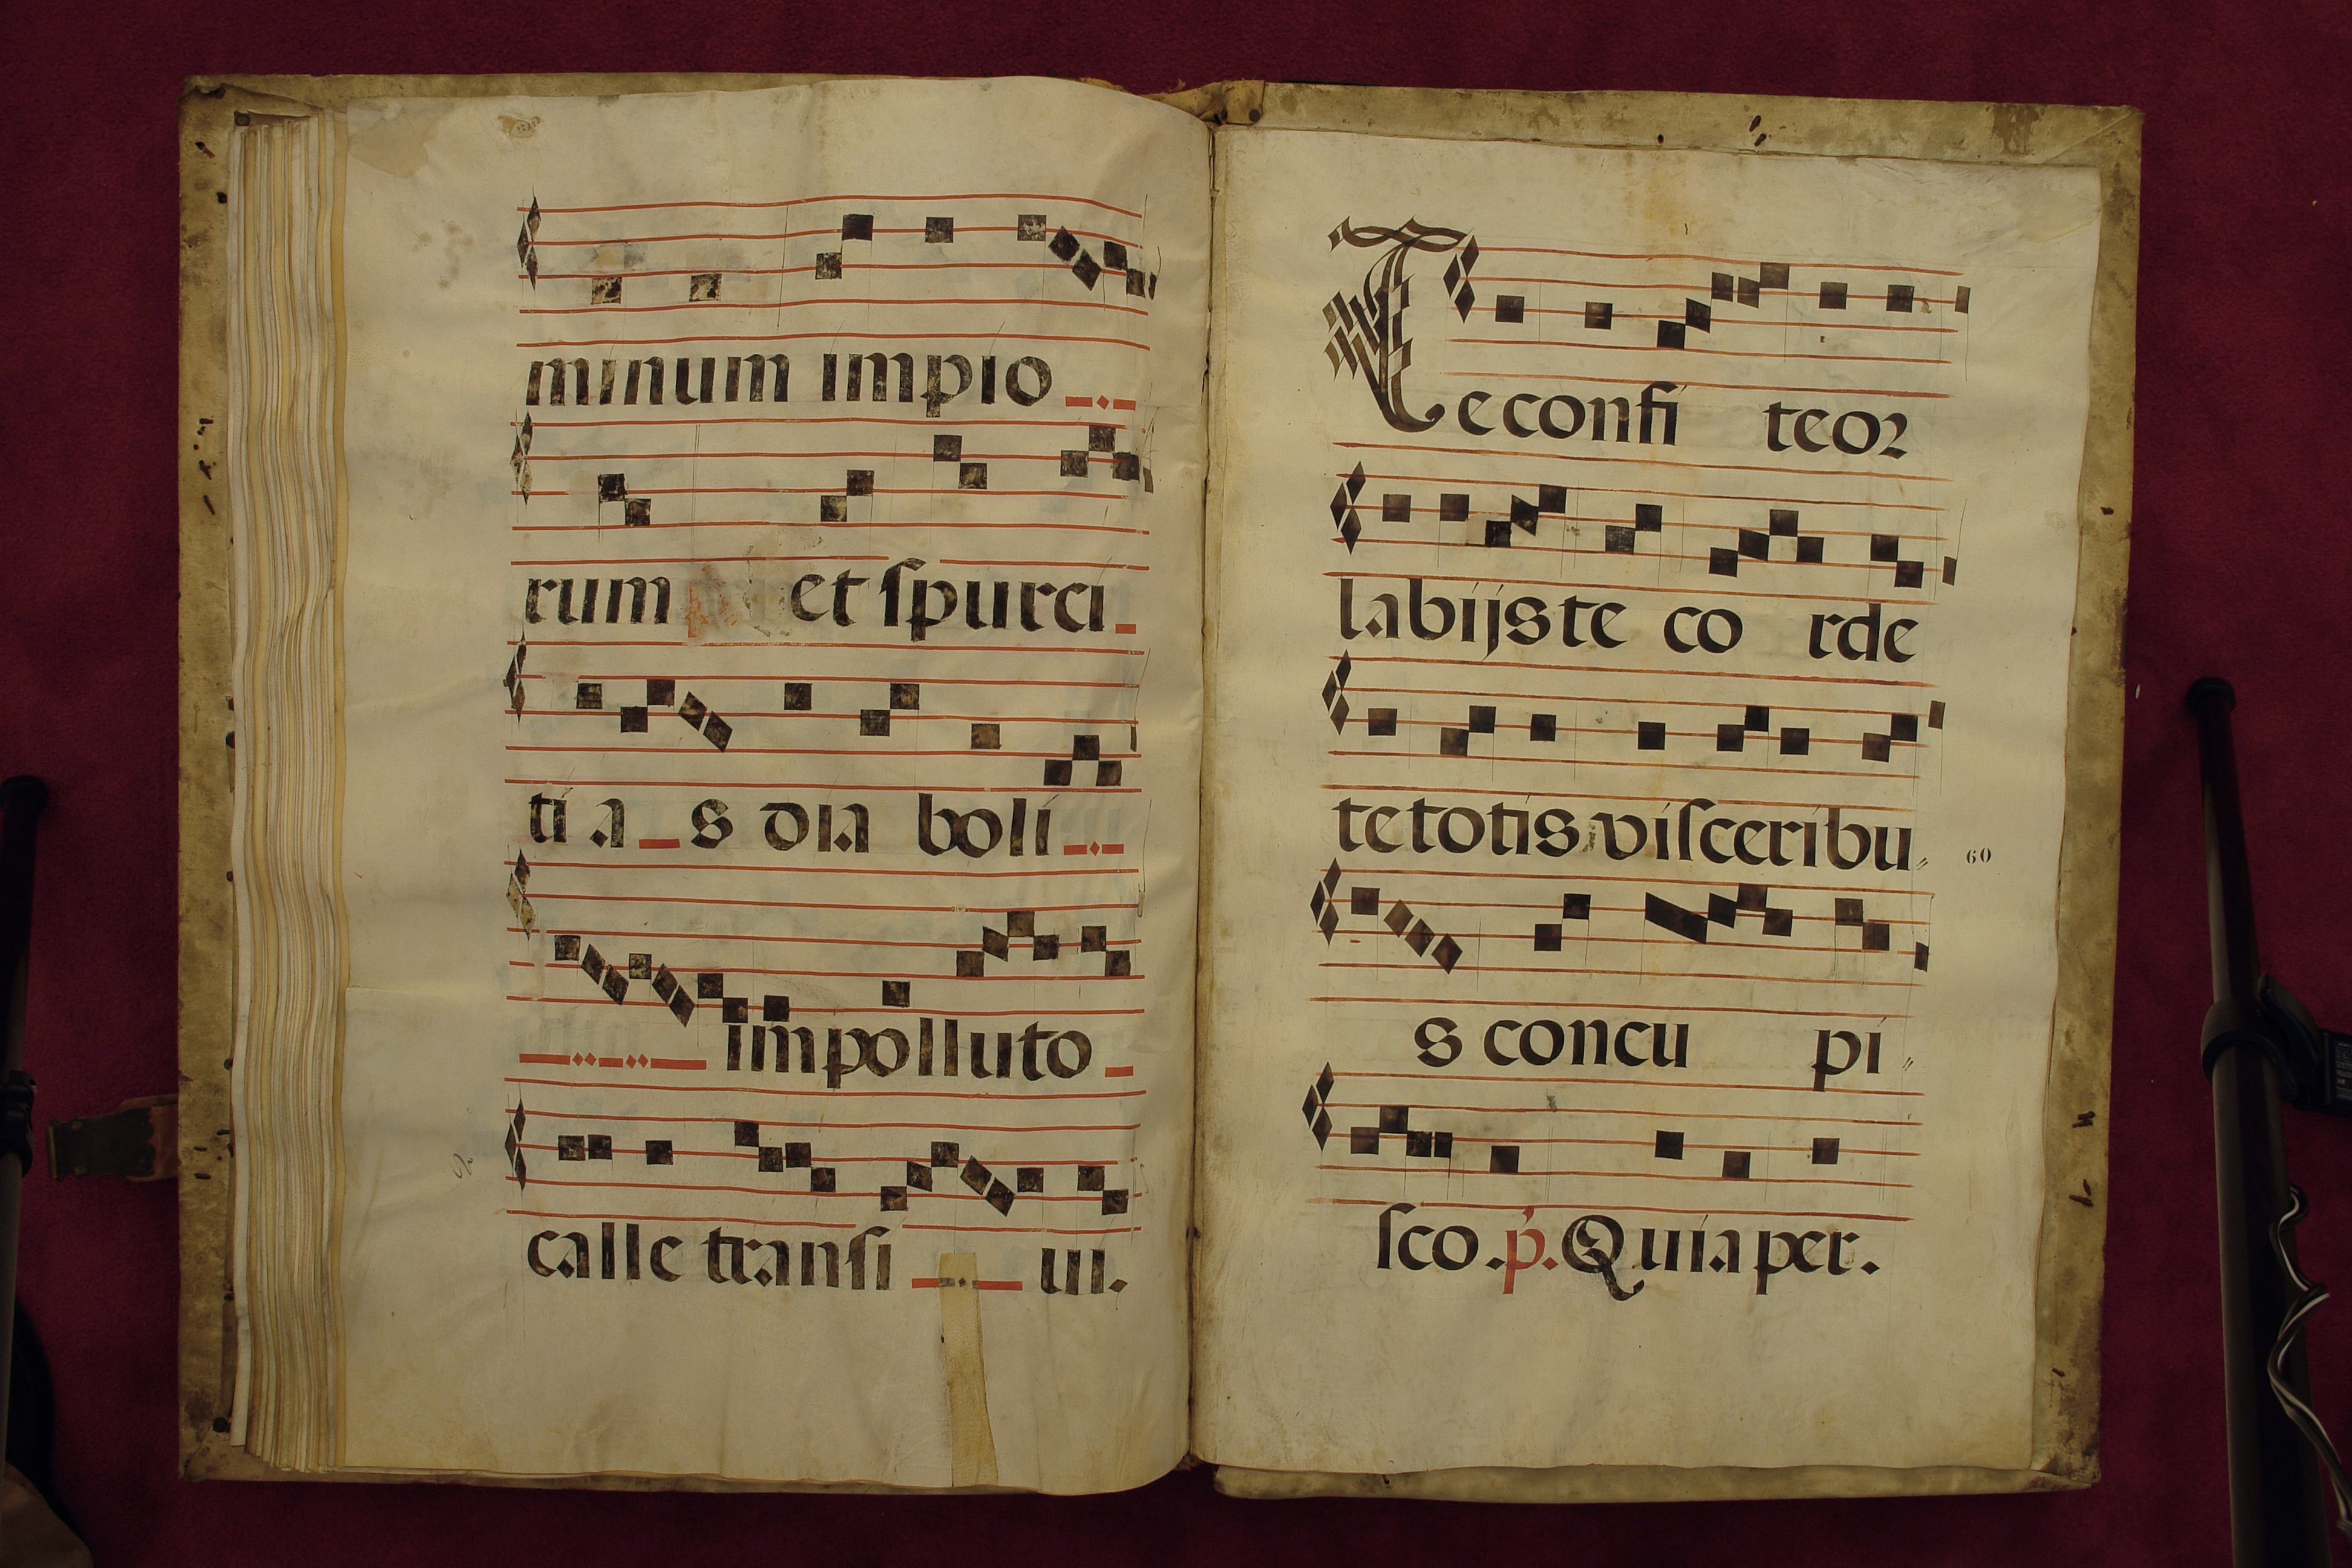 minum impio
rum et spurci
ti a s dia boli
impolluto
calle transi ui.
Te confi teor
labijs te co rde
te totis visceribu
60
s concu pi
sco. p. Quia per.